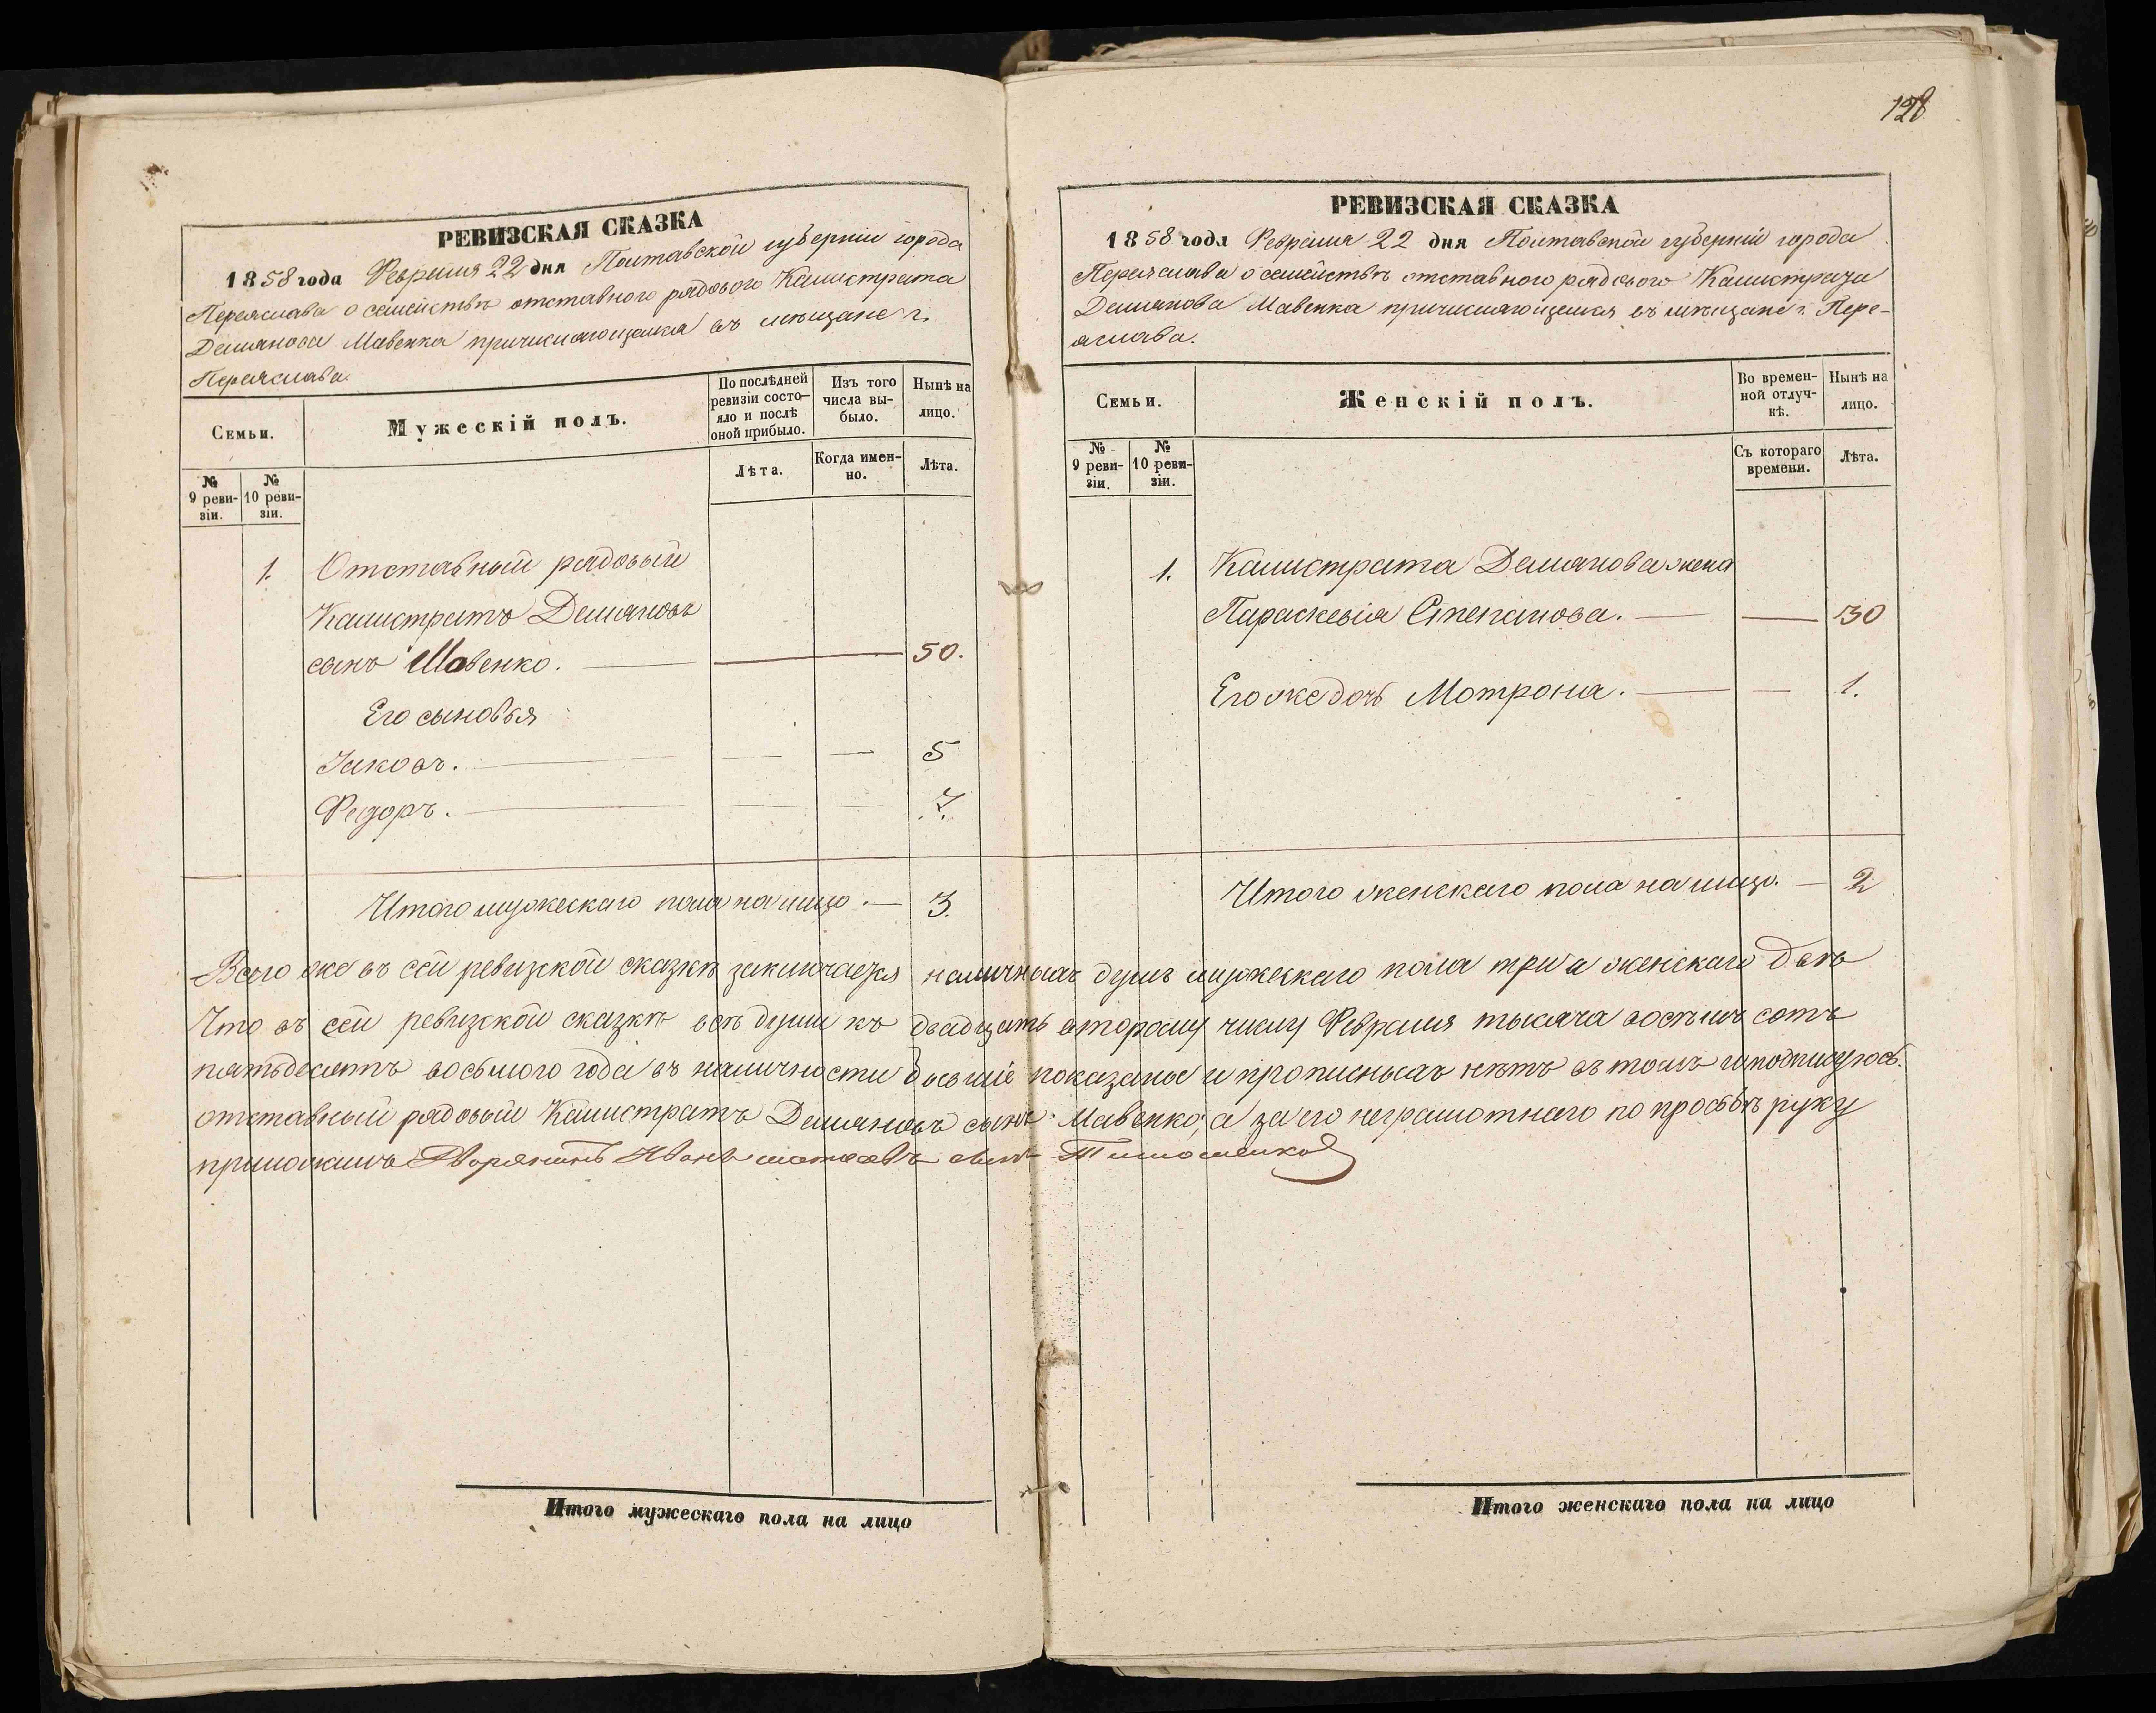 128
РЕВИЗСКАЯ СКАЗКА
1858 года Февраля 22 дня Полтавской губерніи города
Переяслава о семействѣ отставного рядового Калистрата
Демянова Мавенка причисляющемся въ мѣщане г.
Переяслава.
Семьи.
Мужескій полъ.
По послѣдней ревизіи состо-
яло и послѣ
оной прибыло.
Изъ того
числа вы-
было.
Нынѣ на
лицо.
№
9 реви-
зіи.
№
10 реви-
зіи.
Лѣта.
Когда имен-
но.
Лѣта.
1. Отставный рядовый
Калистратъ Демяновъ
сынъ Мавенко. 50.
Его сыновья
Іаковъ. 5
Федоръ. 7.
Итого мужескаго пола на лицо. — 3.
РЕВИЗСКАЯ СКАЗКА
1858 года Февраля 22 дня Полтавской губерніи города
Переяслава о семействѣ отставного рядового Калистрата
Демянова Мавенка причисляющемся въ мѣщане г. Пере-
яслава.
Семьи.
Женскій полъ.
Во времен-
ной отлуч-
кѣ.
Нынѣ на
лицо.
№
9 реви-
зіи.
№
10 реви-
зіи.
Съ котораго
времени.
Лѣта.
1. Калистрата Демянова жена
Параскевія Степанова. — — 30
Его же дочь Мотрона. — — 1.
Итого женскаго пола на лицо. — 2
Всего же въ сей ревизской сказкѣ заключается наличныхъ душъ мужескаго пола три а женскаго двѣ
Что въ сей ревизской сказкѣ всѣ души къ двадцать второму числу Февраля тысяча восемь сотъ
пятьдесятъ восьмого года въ наличности бывшіе показаны и прописныхъ нѣтъ въ томъ и подписуюсь.
отставный рядовый Калистратъ Демяновъ сынъ Мавенко, а за его неграмотнаго по просьбѣ руку
приложилъ Дворянинъ Иванъ сынъ Тимошенко
Итого мужескаго пола на лицо
Итого женскаго пола на лицо